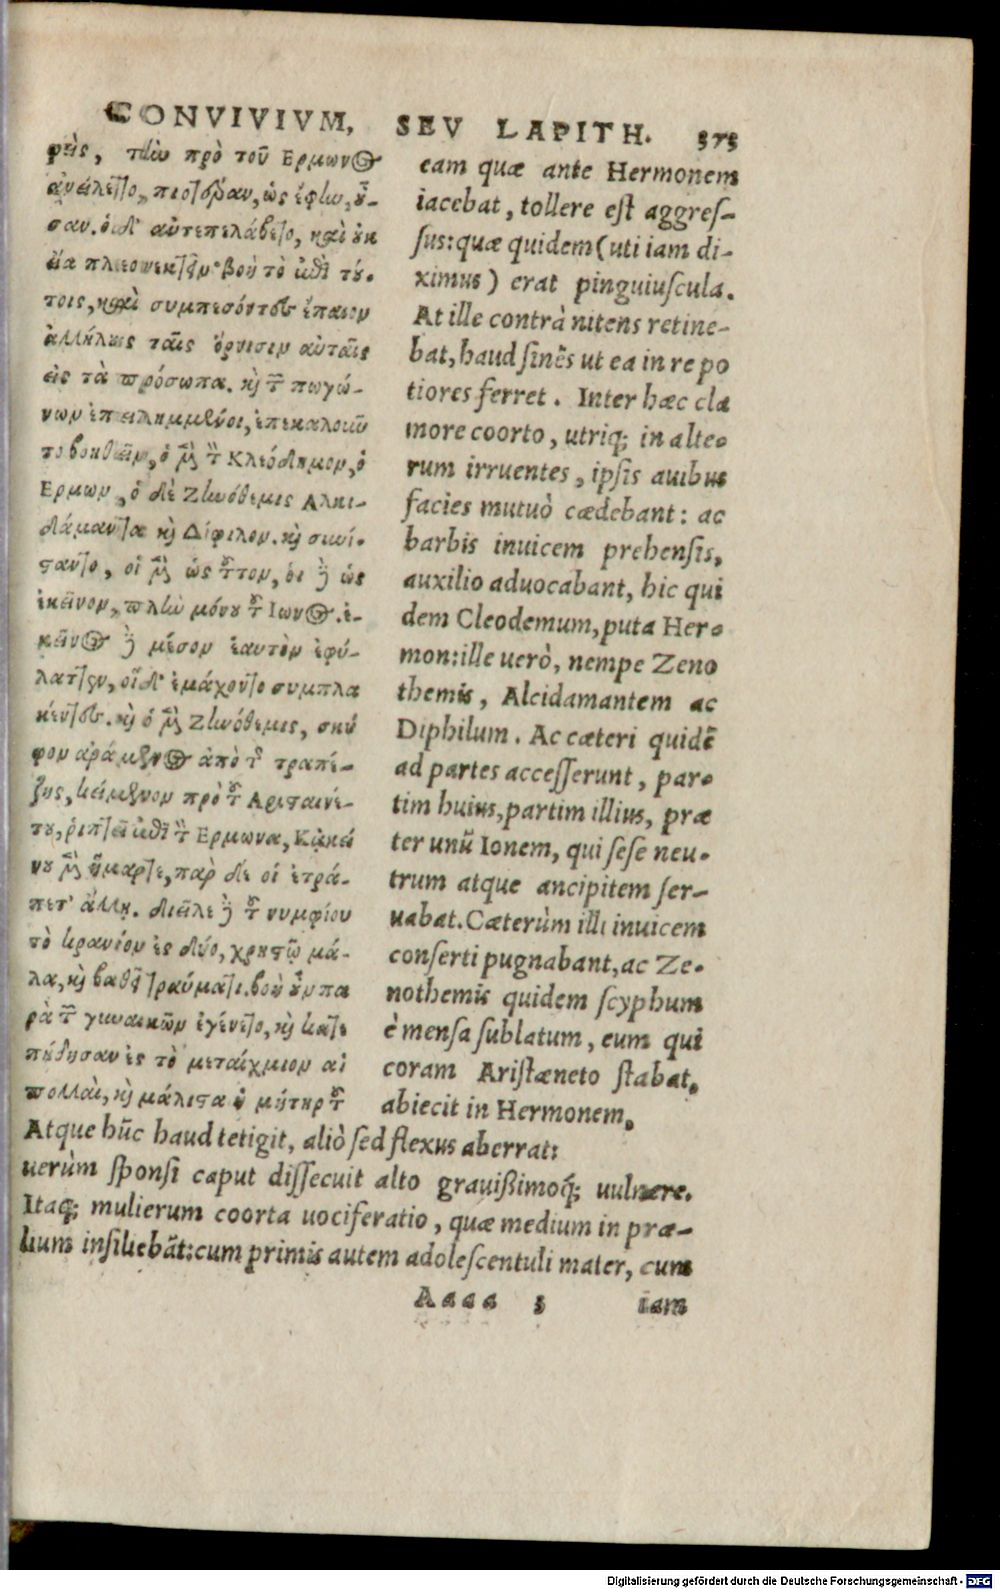 CONVIVIVM, SEV LAPITH. 575
φεὶς, τὴν πρὸ τοῦ Ερμωνος
ἀνείλετο, πιοτέραν, ὡς ἔφην, οὖ-
σαν. ὁ δ' αὐτεπελάβετο, καὶ οὐκ
εἴα πλεονεκτεῖν. βοὴ τὸ ἐπὶ τού-
τοις, καὶ συμπεσόντες ἔπαιον
ἀλλήλους ταῖς ὄρνισιν αὐταῖς
εἰς τὰ πρόσωπα. καὶ τῶν πωγώ-
νων ἐπειλημμένοι, ἐπεκαλοῦν
το βοηθεῖν, ὁ μὲν τὸν Κλεόδημον, ὁ
Ερμων, ὁ δὲ Ζηνόθεμις Αλκι-
δάμαντα καὶ Δίφιλον. καὶ συνί-
σταντο, οἱ μὲν ὡς τοῦτον, οἱ δὲ ὡς
ἐκεῖνον, πλὴν μόνου τοῦ Ιωνος. ἐ-
κεῖνος δὲ μέσον ἑαυτὸν ἐφύ-
λαττεν, οἱ δ' ἐμάχοντο συμπλα
κέντες. καὶ ὁ μὲν Ζηνόθεμις, σκύ
φον ἀράμενος ἀπὸ τῆς τραπέ-
ζης, κείμενον πρὸ τοῦ Αρισταινέ-
του, ῥιπτεῖ ἐπὶ τὸν Ερμωνα, Κἀκεί
νου μὲν ἥμαρτε, παρ δὲ οἱ ἐτρά-
πετ' ἄλλη. διεῖλε δὲ τοῦ νυμφίου
τὸ κρανίον ἐς δύο, χρηστῷ μά-
λα, καὶ βαθεῖ τραύματι. βοὴ οὖν πα
ρὰ τῶν γυναικῶν ἐγένετο, καὶ κατε
πήδησαν ἐς τὸ μεταίχμιον αἱ
πολλαὶ, καὶ μάλιστα ἡ μήτηρ τοῦ
eam quæ ante Hermonem
iacebat, tollere est aggres-
sus: quæ quidem (uti iam di-
ximus) erat pinguiuscula.
At ille contrà nitens retine-
bat, haud sinẽs ut ea in re po
tiores ferret. Inter hæc cla
more coorto, utriq; in alte-
rum irruentes, ipsis auibus
facies mutuò cædebant: ac
barbis inuicem prehensis,
auxilio aduocabant, hic qui
dem Cleodemum, puta Her-
mon: ille uerò, nempe Zeno
themis, Alcidamantem ac
Diphilum. Ac cæteri quidẽ
ad partes accesserunt, par-
tim huius, partim illius, præ
ter unũ Ionem, qui sese neu-
trum atque ancipitem ser-
uabat. Cæterùm illi inuicem
conserti pugnabant, ac Ze-
nothemis quidem scyphum
è mensa sublatum, eum qui
coram Aristæneto stabat,
abiecit in Hermonem.
Atque hũc haud tetigit, aliò sed flexus aberrat:
uerùm sponsi caput dissecuit alto grauißimoq́; uulnere.
Itaq; mulierum coorta uociferatio, quæ medium in præ-
lium insiliebãt: cum primis autem adolescentuli mater, cum
Aaaa 5 iam
Digitalisierung gefördert durch die Deutsche Forschungsgemeinschaft - DFG